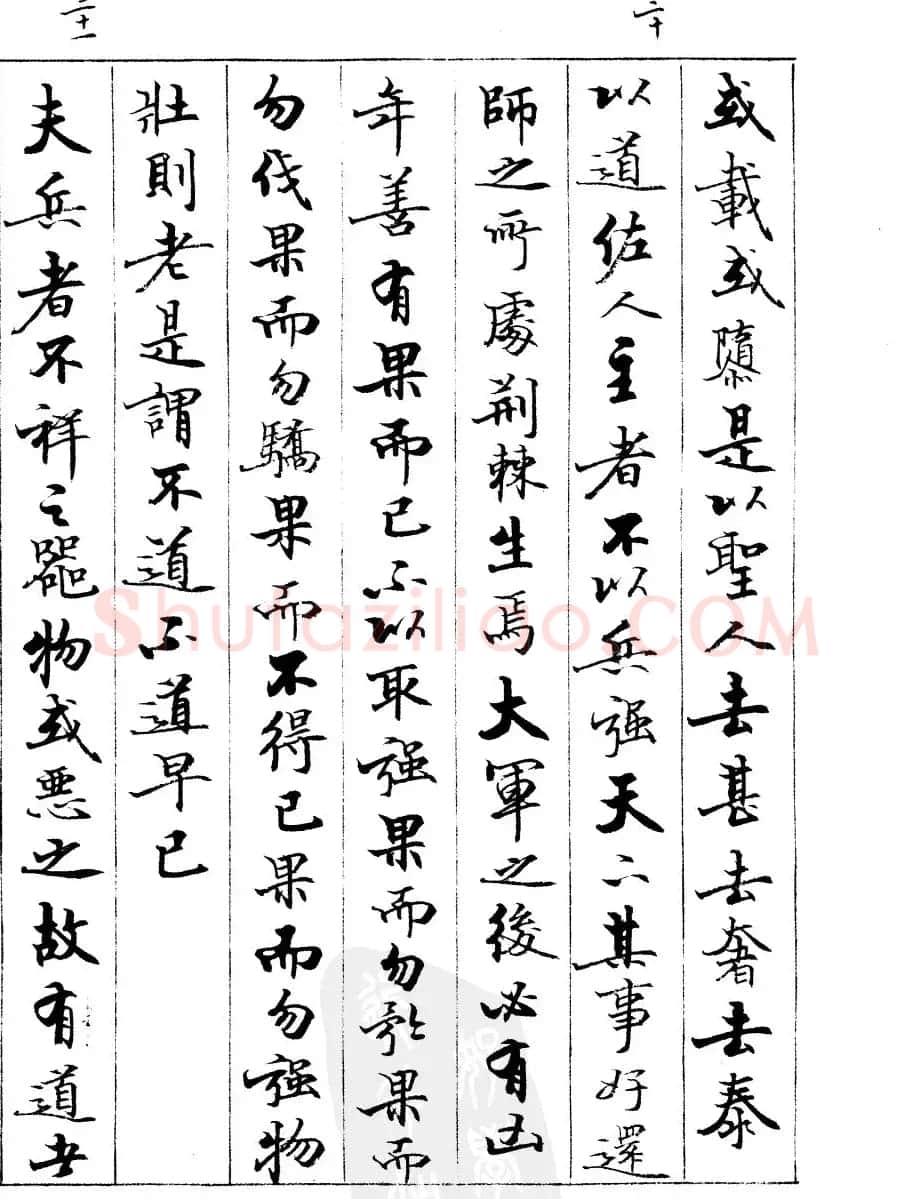 二十
二十一
或載或隳是以聖人去甚去奢去泰
以道佐人主者不以兵强天下其事好還
師之所處荆棘生焉大軍之後必有凶
年善有果而已不以取强果而勿矜果而
勿伐果而勿驕果而不得已果而勿强物
壯則老是謂不道不道早已
夫兵者不祥之器物或惡之故有道者
Shufaziliao.COM